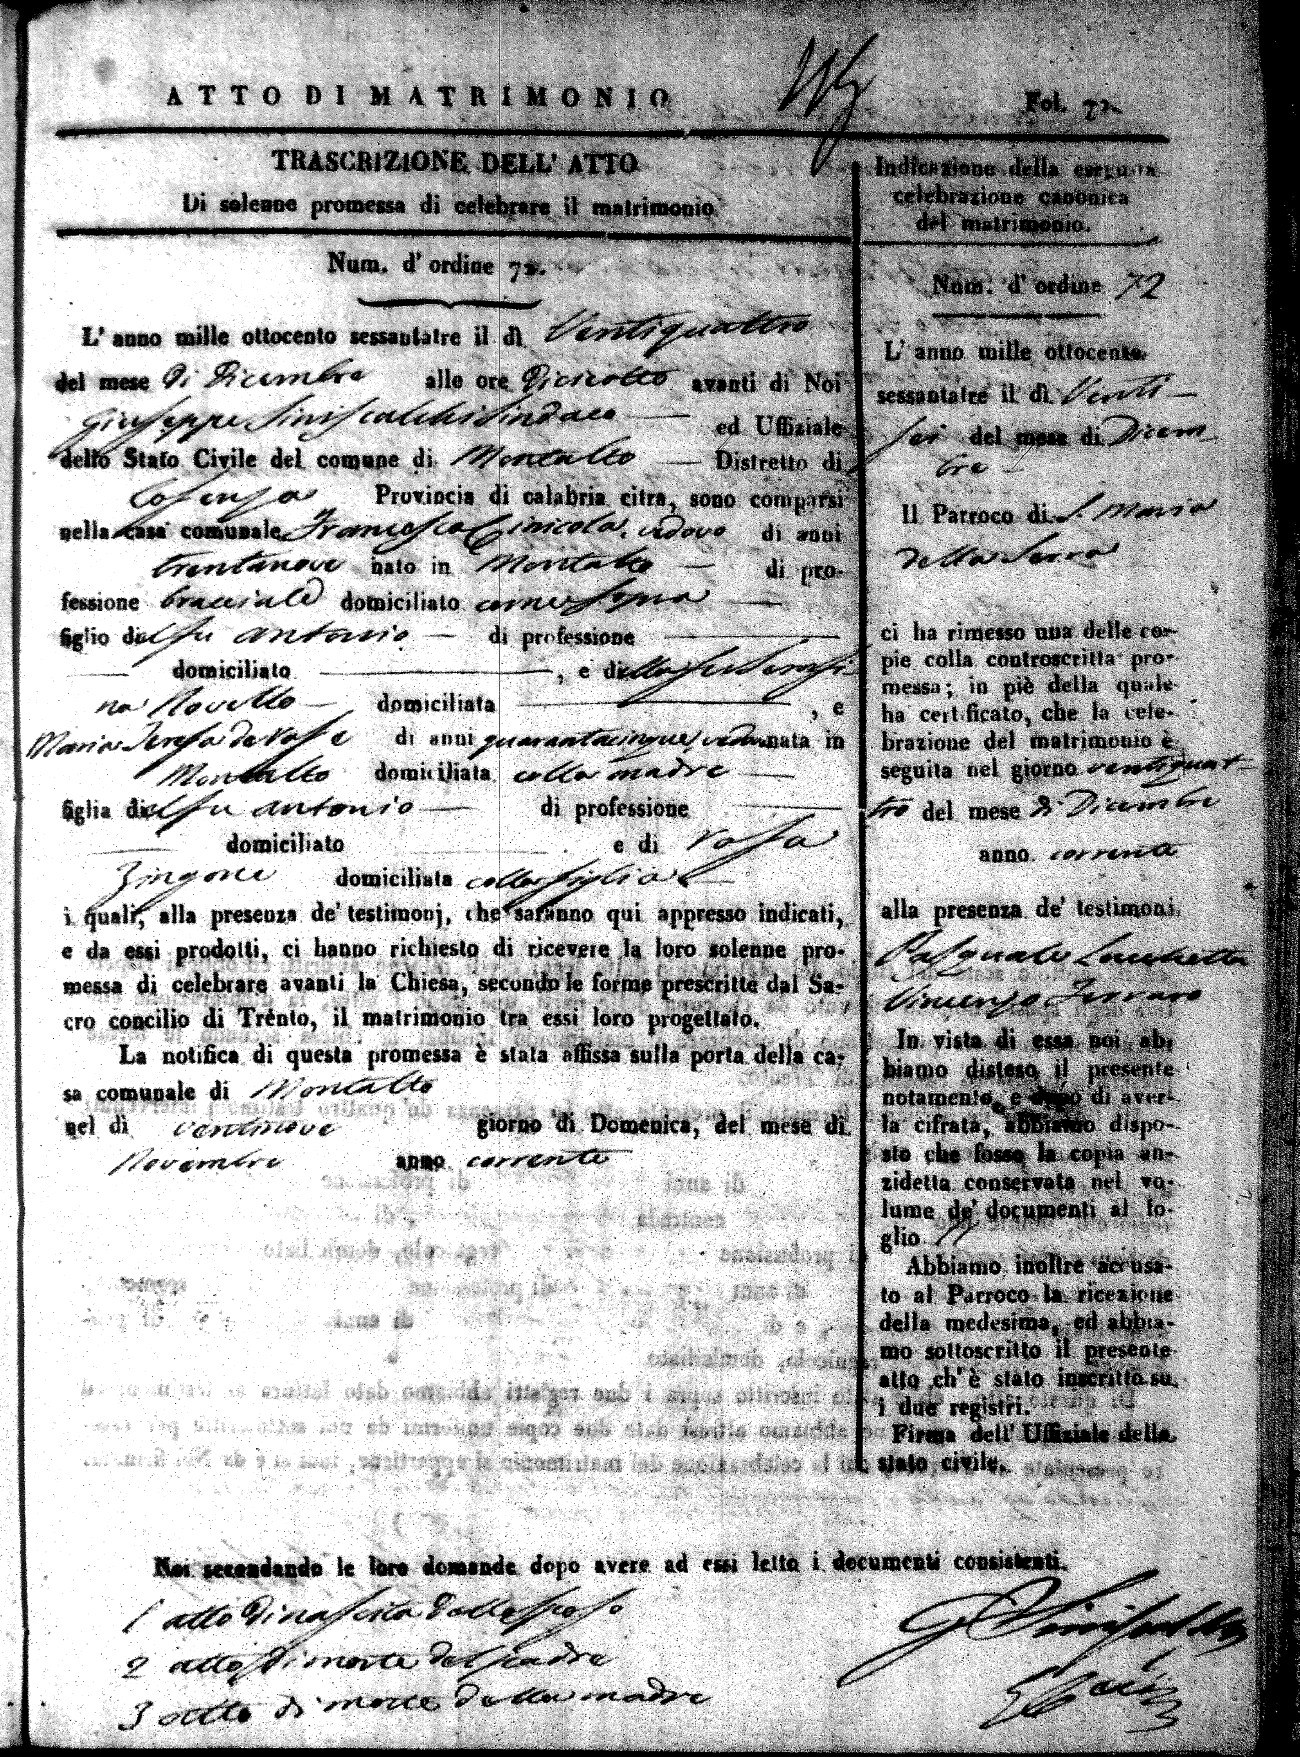 ATTO DI MATRIMONIO
Fol. 72
TRASCRIZIONE DELL' ATTO
Di solenne promessa di celebrare il matrimonio
Num. d' ordine 72.
L' anno mille ottocento sessantatre il dì Ventiquattro
del mese di Dicembre alle ore Diciotto avanti di Noi
Giuseppe Siniscalchi Sindaco ed Uffiziale
dello Stato Civile del comune di Montalto Distretto di
Cosenza Provincia di calabria citra, sono comparsi
nella casa comunale Francesco Cinicola, vedovo di anni
trentanove nato in Montalto di pro-
fessione bracciale domiciliato come sopra
figlio del fu Antonio di professione
domiciliato , e della fu Serafi-
na Novello domiciliata , e
Maria Teresa de Rosse di anni quarantacinque, vedova nata in
Montalto domiciliata colla madre
figlia del fu Antonio di professione
domiciliato e di Rossa
Zingone domiciliata colla figlia
i quali, alla presenza de' testimonj, che saranno qui appresso indicati,
e da essi prodotti, ci hanno richiesto di ricevere la loro solenne pro-
messa di celebrare avanti la Chiesa, secondo le forme prescritte dal Sa-
cro concilio di Trento, il matrimonio tra essi loro progettato.
La notifica di questa promessa è stata affissa sulla porta della ca-
sa comunale di Montalto
nel di ventinove giorno di Domenica, del mese di
Novembre anno corrente
Noi secondando le loro domande dopo avere ad essi letto i documenti consistenti.
1 atto di nascita dello sposo
2 atto di morte del padre
3 atto di morte della madre
Indicazione della eseguita
celebrazione canonica
del matrimonio.
Num. d' ordine 72
L' anno mille ottocento
sessantatre il dì Venti-
sei del mese di Dicem
bre
Il Parroco di S. Maria
della Serra
ci ha rimesso una delle co-
pie colla controscritta pro-
messa; in piè della quale
ha certificato, che la cele-
brazione del matrimonio è
seguita nel giorno ventiquat-
tro del mese di Dicembre
anno corrente
alla presenza de' testimoni
Pasquale Lanchetta
Vincenzo Ferraro
In vista di essa noi ab-
biamo disteso il presente
notamento, e dopo di aver-
la cifrata, abbiamo dispo-
sto che fosse la copia an-
zidetta conservata nel vo-
lume de' documenti al fo-
glio
Abbiamo inoltre accusa-
to al Parroco la ricezione
della medesima, ed abbia-
mo sottoscritto il presente
atto ch' è stato inscritto su
i due registri.
Firma dell' Uffiziale dello
stato civile.
G Siniscalchi